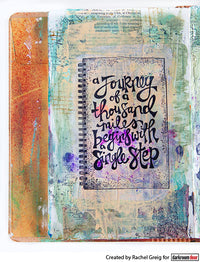 a Journey
of a
thousand
miles
begins with
a single step
Created by Rachel Greig for darkroom door